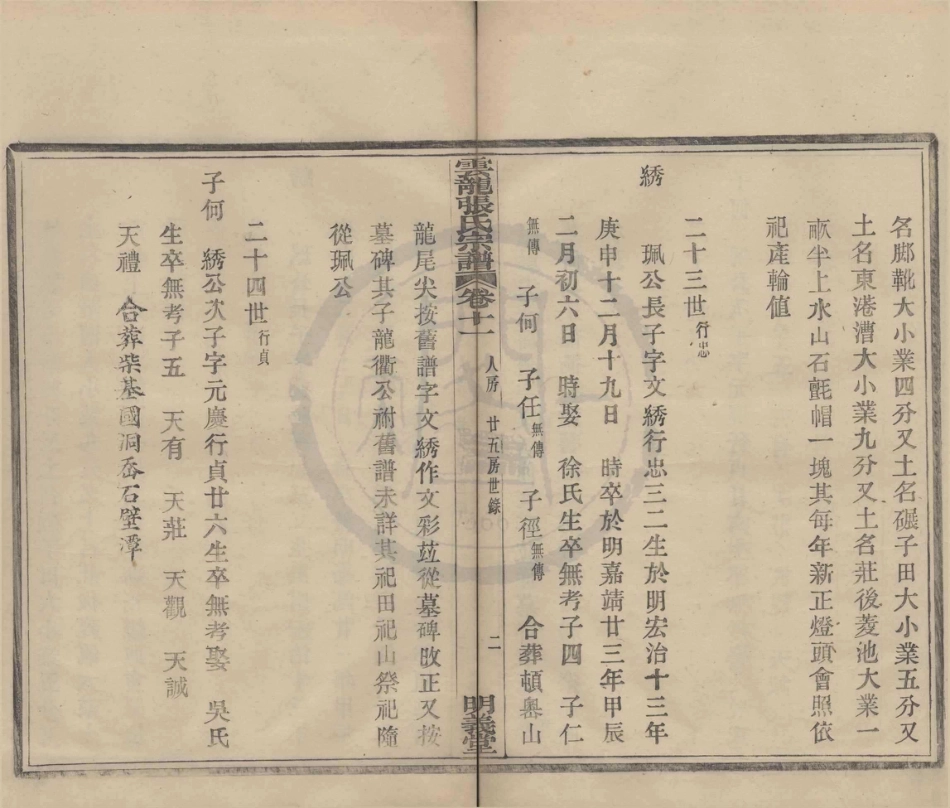 名郎靴大小業四分又土名碾子田大小業五分又
土名東港漕大小業九分又土名莊後菱池大業一
畝半上水山石氈帽一塊其每年新正燈頭會照依
祀產輪值
二十三世行忠
綉 珮公長子字文綉行忠三二生於明宏治十三年
庚申十二月十九日 時卒於明嘉靖廿三年甲辰
二月初六日 時娶 徐氏生卒無考子四 子仁
無傳 子何 子任無傳 子徑無傳 合葬頓畧山
雲龍張氏宗譜 卷十一 人房 廿五房世錄 二 明義堂
龍尾尖按舊譜字文綉作文彩茲從墓碑改正又按
墓碑其子龍衢公祔舊譜未詳其祀田祀山祭祀隨
從珮公
二十四世行貞
子何 綉公次子字元慶行貞廿六生卒無考娶 吳氏
生卒無考子五 天有 天莊 天觀 天誠
天禮 合葬柴基國洞岙石壁潭